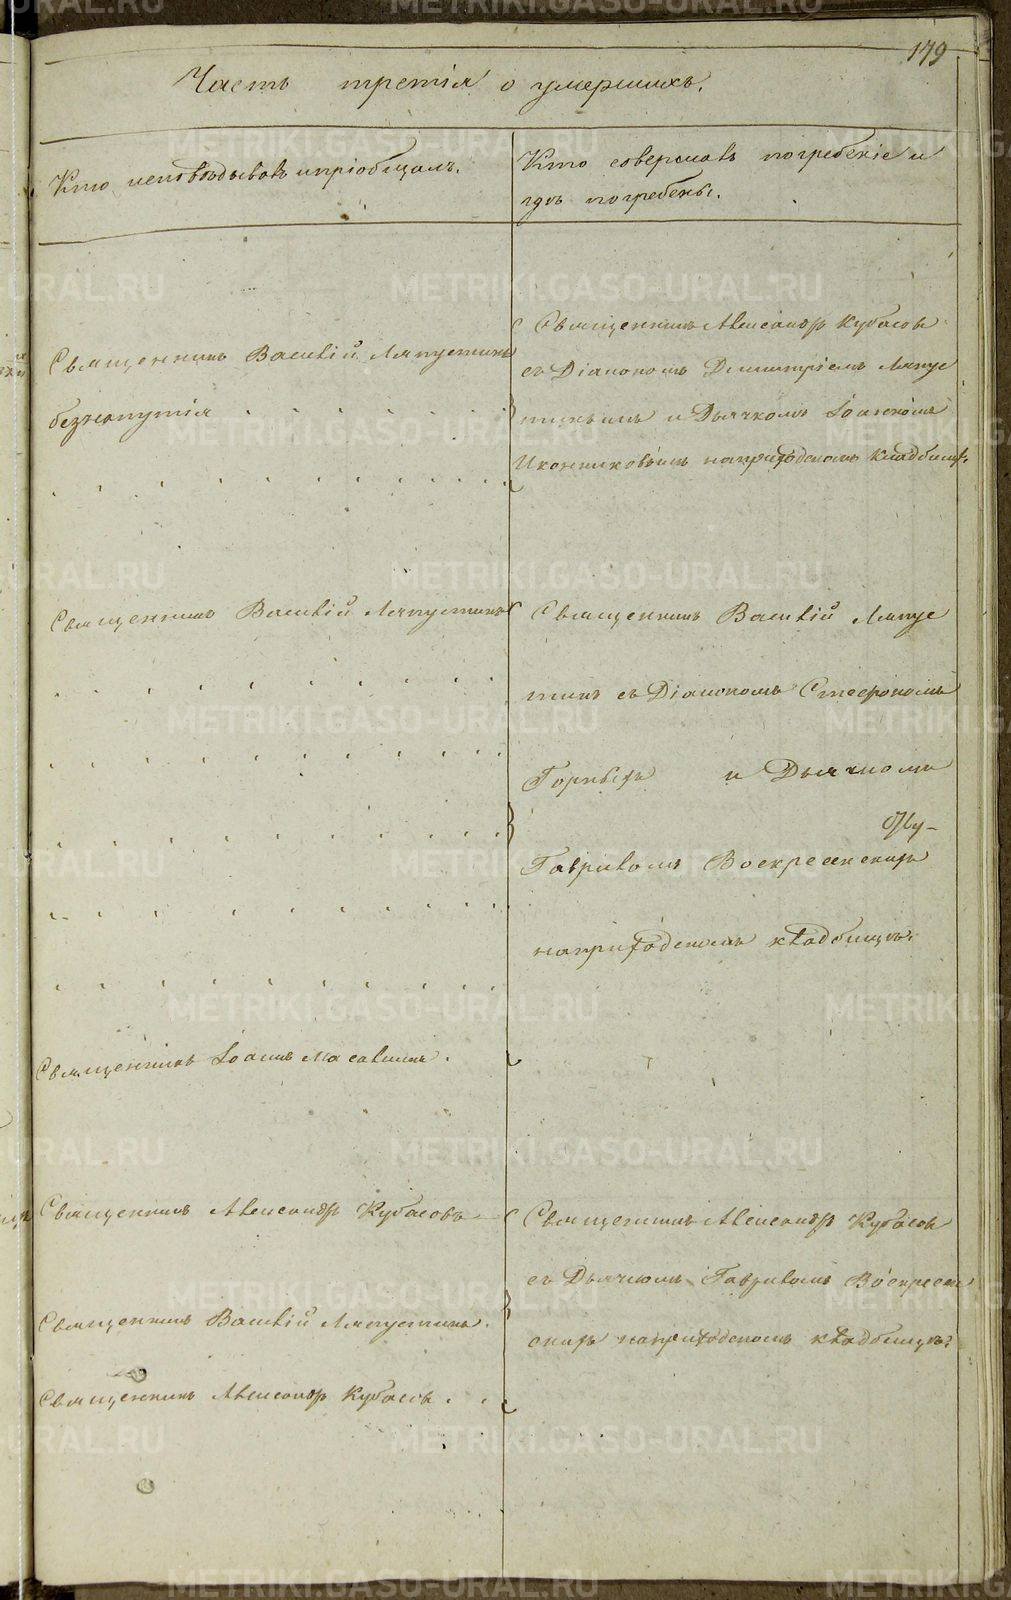 179
Часть третія о умершихъ.
Кто исповѣдывалъ и пріобщалъ.
Кто совершалъ погребеніе и
гдѣ погребены.
Священникъ Василій Ляпустинъ
безъ напутія
Священникъ Александръ Кубасовъ
съ Діакономъ Димитріемъ Ляпус
тинымъ и Дьячкомъ Іоанномъ
Иконниковымъ на приходскомъ кладбищѣ.
Священникъ Василій Ляпустинъ
Священникъ Василій Ляпус
тинъ съ Діакономъ Стефаномъ
Горныхъ и Дьячкомъ
Гавриломъ Воскресенскимъ
на приходскомъ кладбищѣ.
Священникъ Іоаннъ
Священникъ Александръ Кубасовъ
Священникъ Василій Ляпустинъ.
Священникъ Александръ Кубасовъ.
Священникъ Александръ Кубасовъ
съ Дьячкомъ Гавриломъ Воскресен
скимъ на приходскомъ кладбищѣ.
METRIKI.GASO-URAL.RU